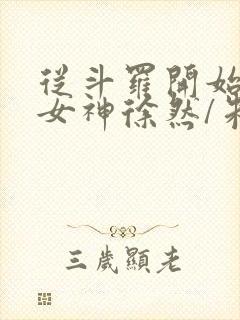 從斗羅開始
女神徐然/
三歲顯老